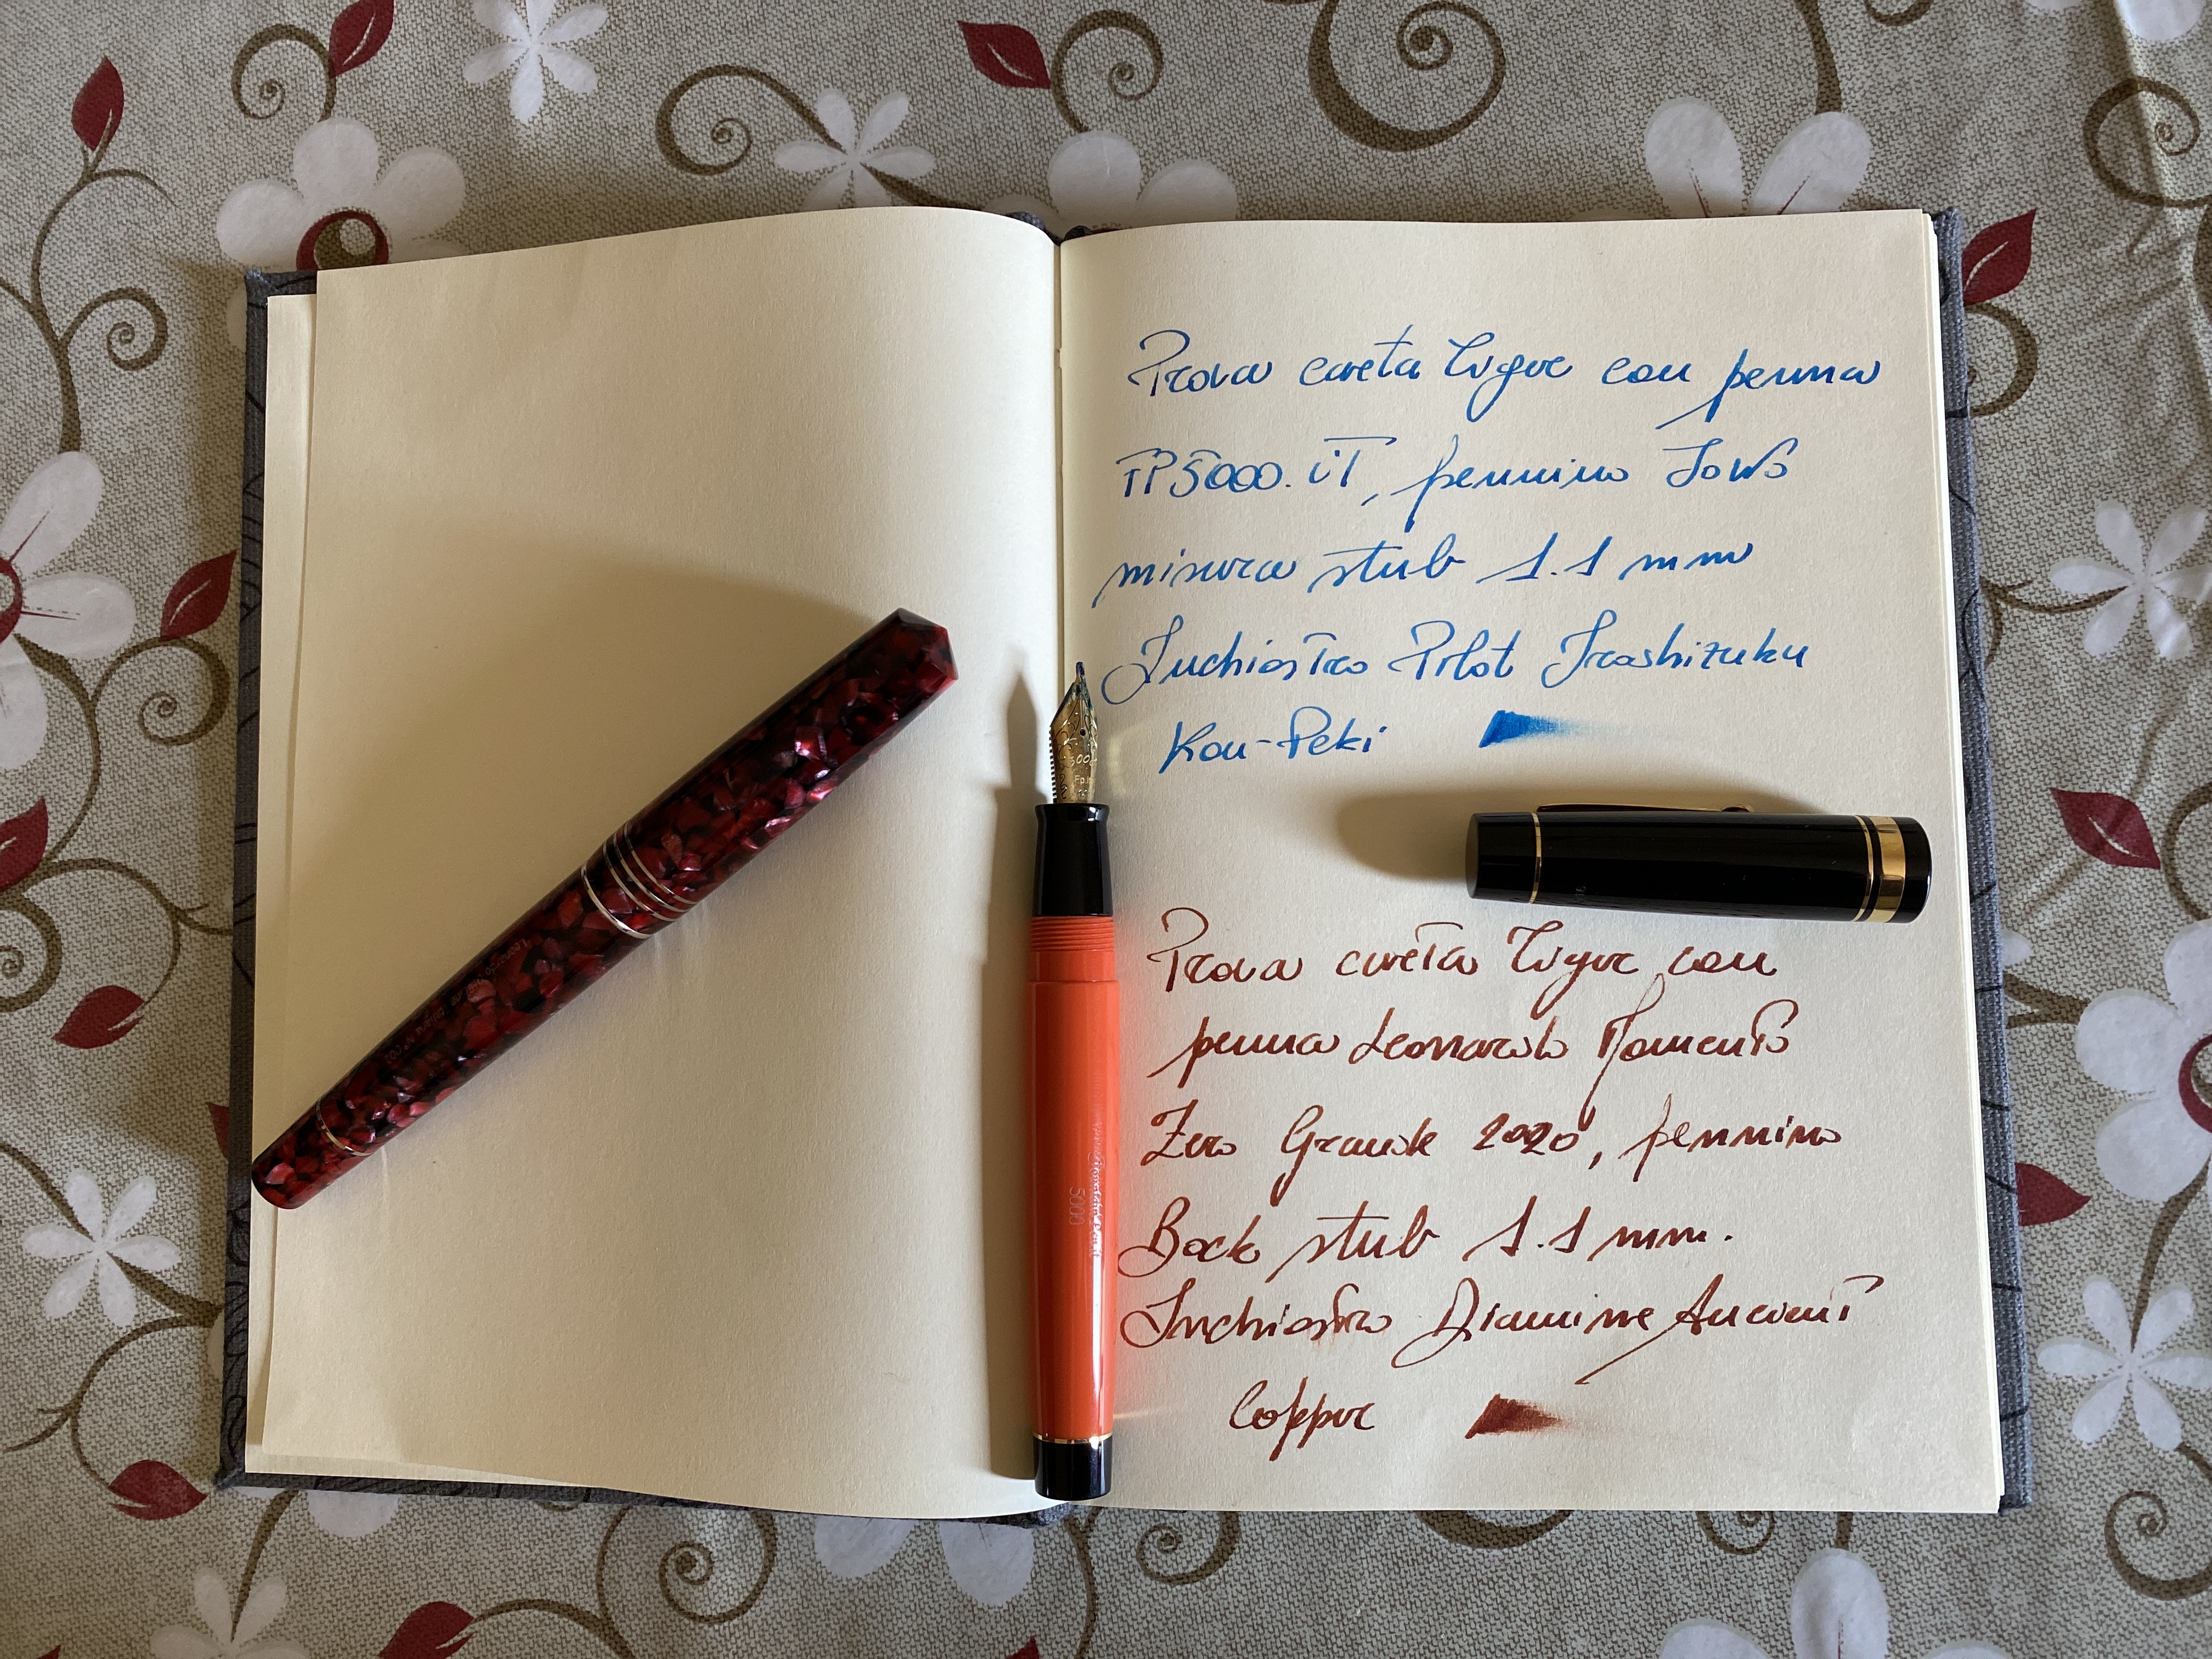 Prova carta Tigre con penna
FP5000.IT, pennino Jowo
misura stub 1.1 mm
Inchiostro Pilot Iroshizuku
Kon-Peki
Prova carta Tigre con
penna Leonardo Momento
Zero Grande 2020, pennino
Bock stub 1.1 mm.
Inchiostro Diamine Ancient
Copper
5000